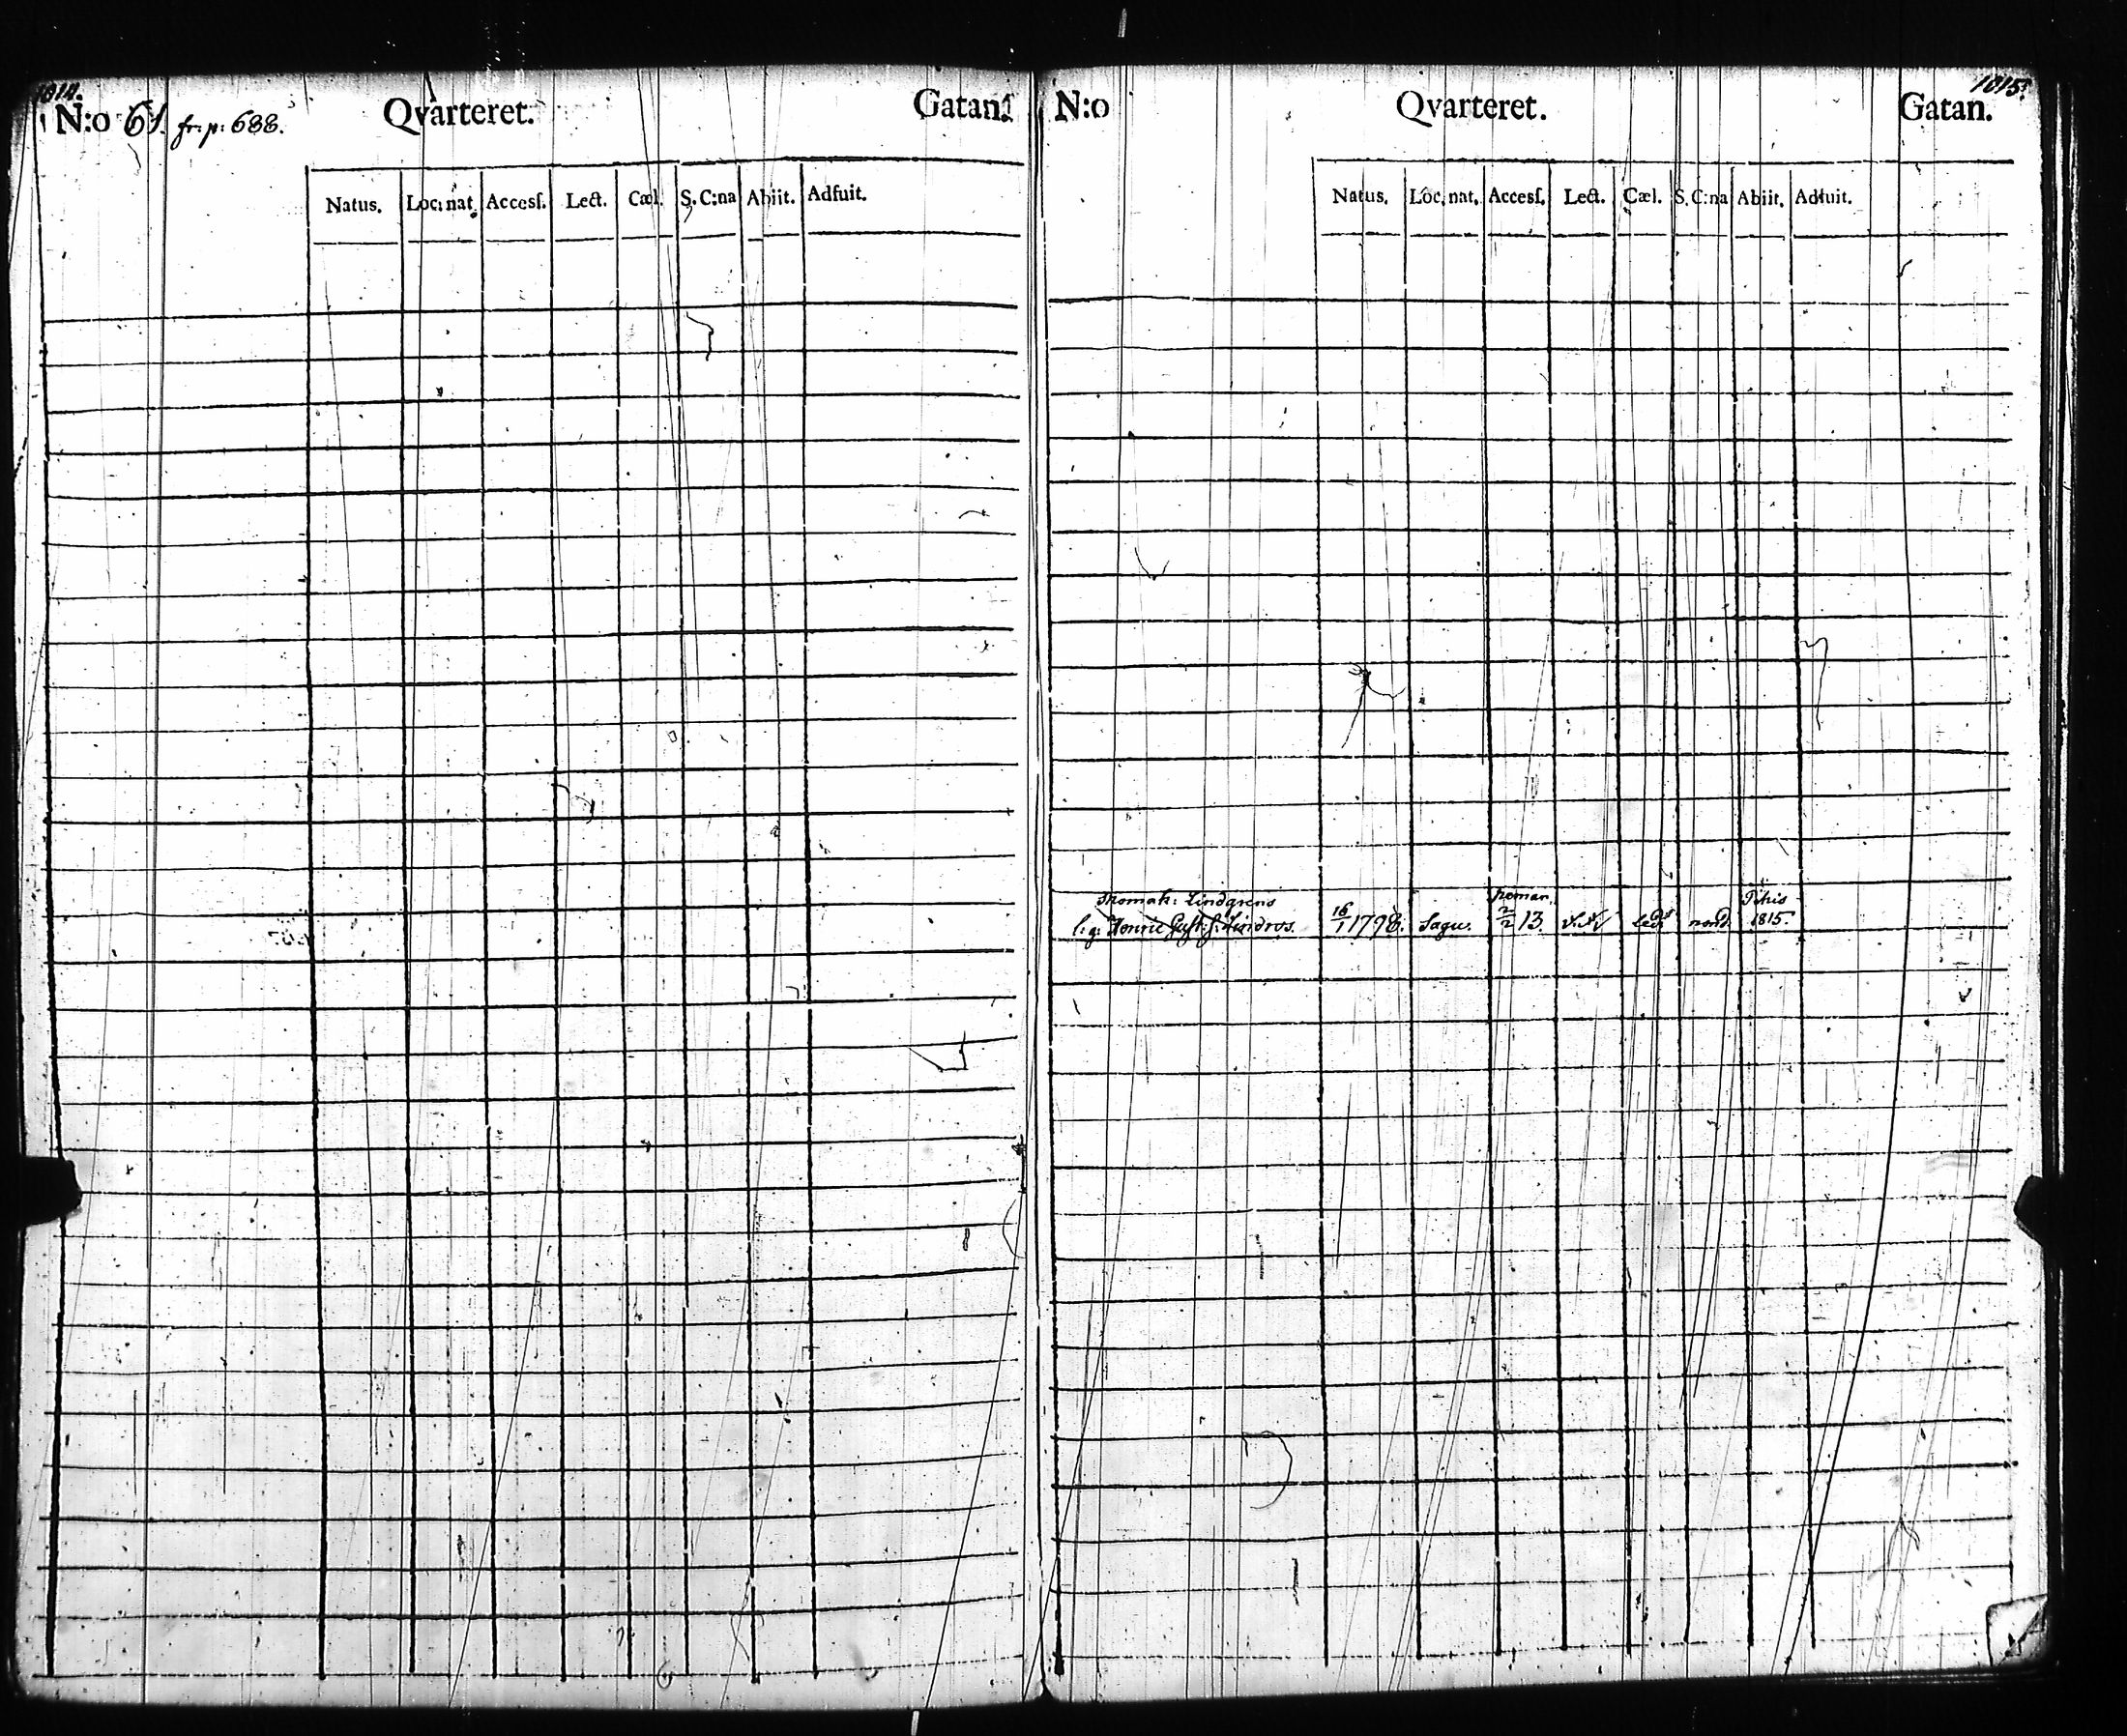 1814.
N:o 61. fr. p. 688. Qvarteret. Gatan.
Natus. Loc. nat. Access. Lect. Cæl. S. C:na Abiit. Adfuit.
1815.
N:o Qvarteret. Gatan.
Natus. Loc. nat. Access. Lect. Cæl. S. C:na Abiit. Adfuit.
Skomak: Lindgrens
l. g. Henric Gust: Lindros. 16/1 1798. Sagu. 2/2 13. 1815.